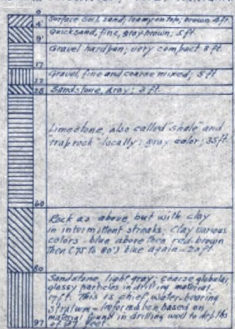 0
Surface soil, sand, loamy on top, brown 4 ft.
4
Quicksand, fine, gray brown; 5 ft
9
Gravel hardpan; very compact 8 ft.
17
Gravel, fine and coarse mixed; 5 ft
22
Sandstone, gray; 3 ft.
25
Limestone, also called "shale" and
"trap rock" locally; gray color; 35 ft.
60
Rock as above but with clay
in intermittent streaks; clay various
colors - blue above then red brown
then (75 to 80') blue again - 20 ft
80
Sandstone, light gray; coarse
glassy particles in drilling material,
17 ft. This is chief water-bearing
stratum - information based on
material found in drilling used to
97